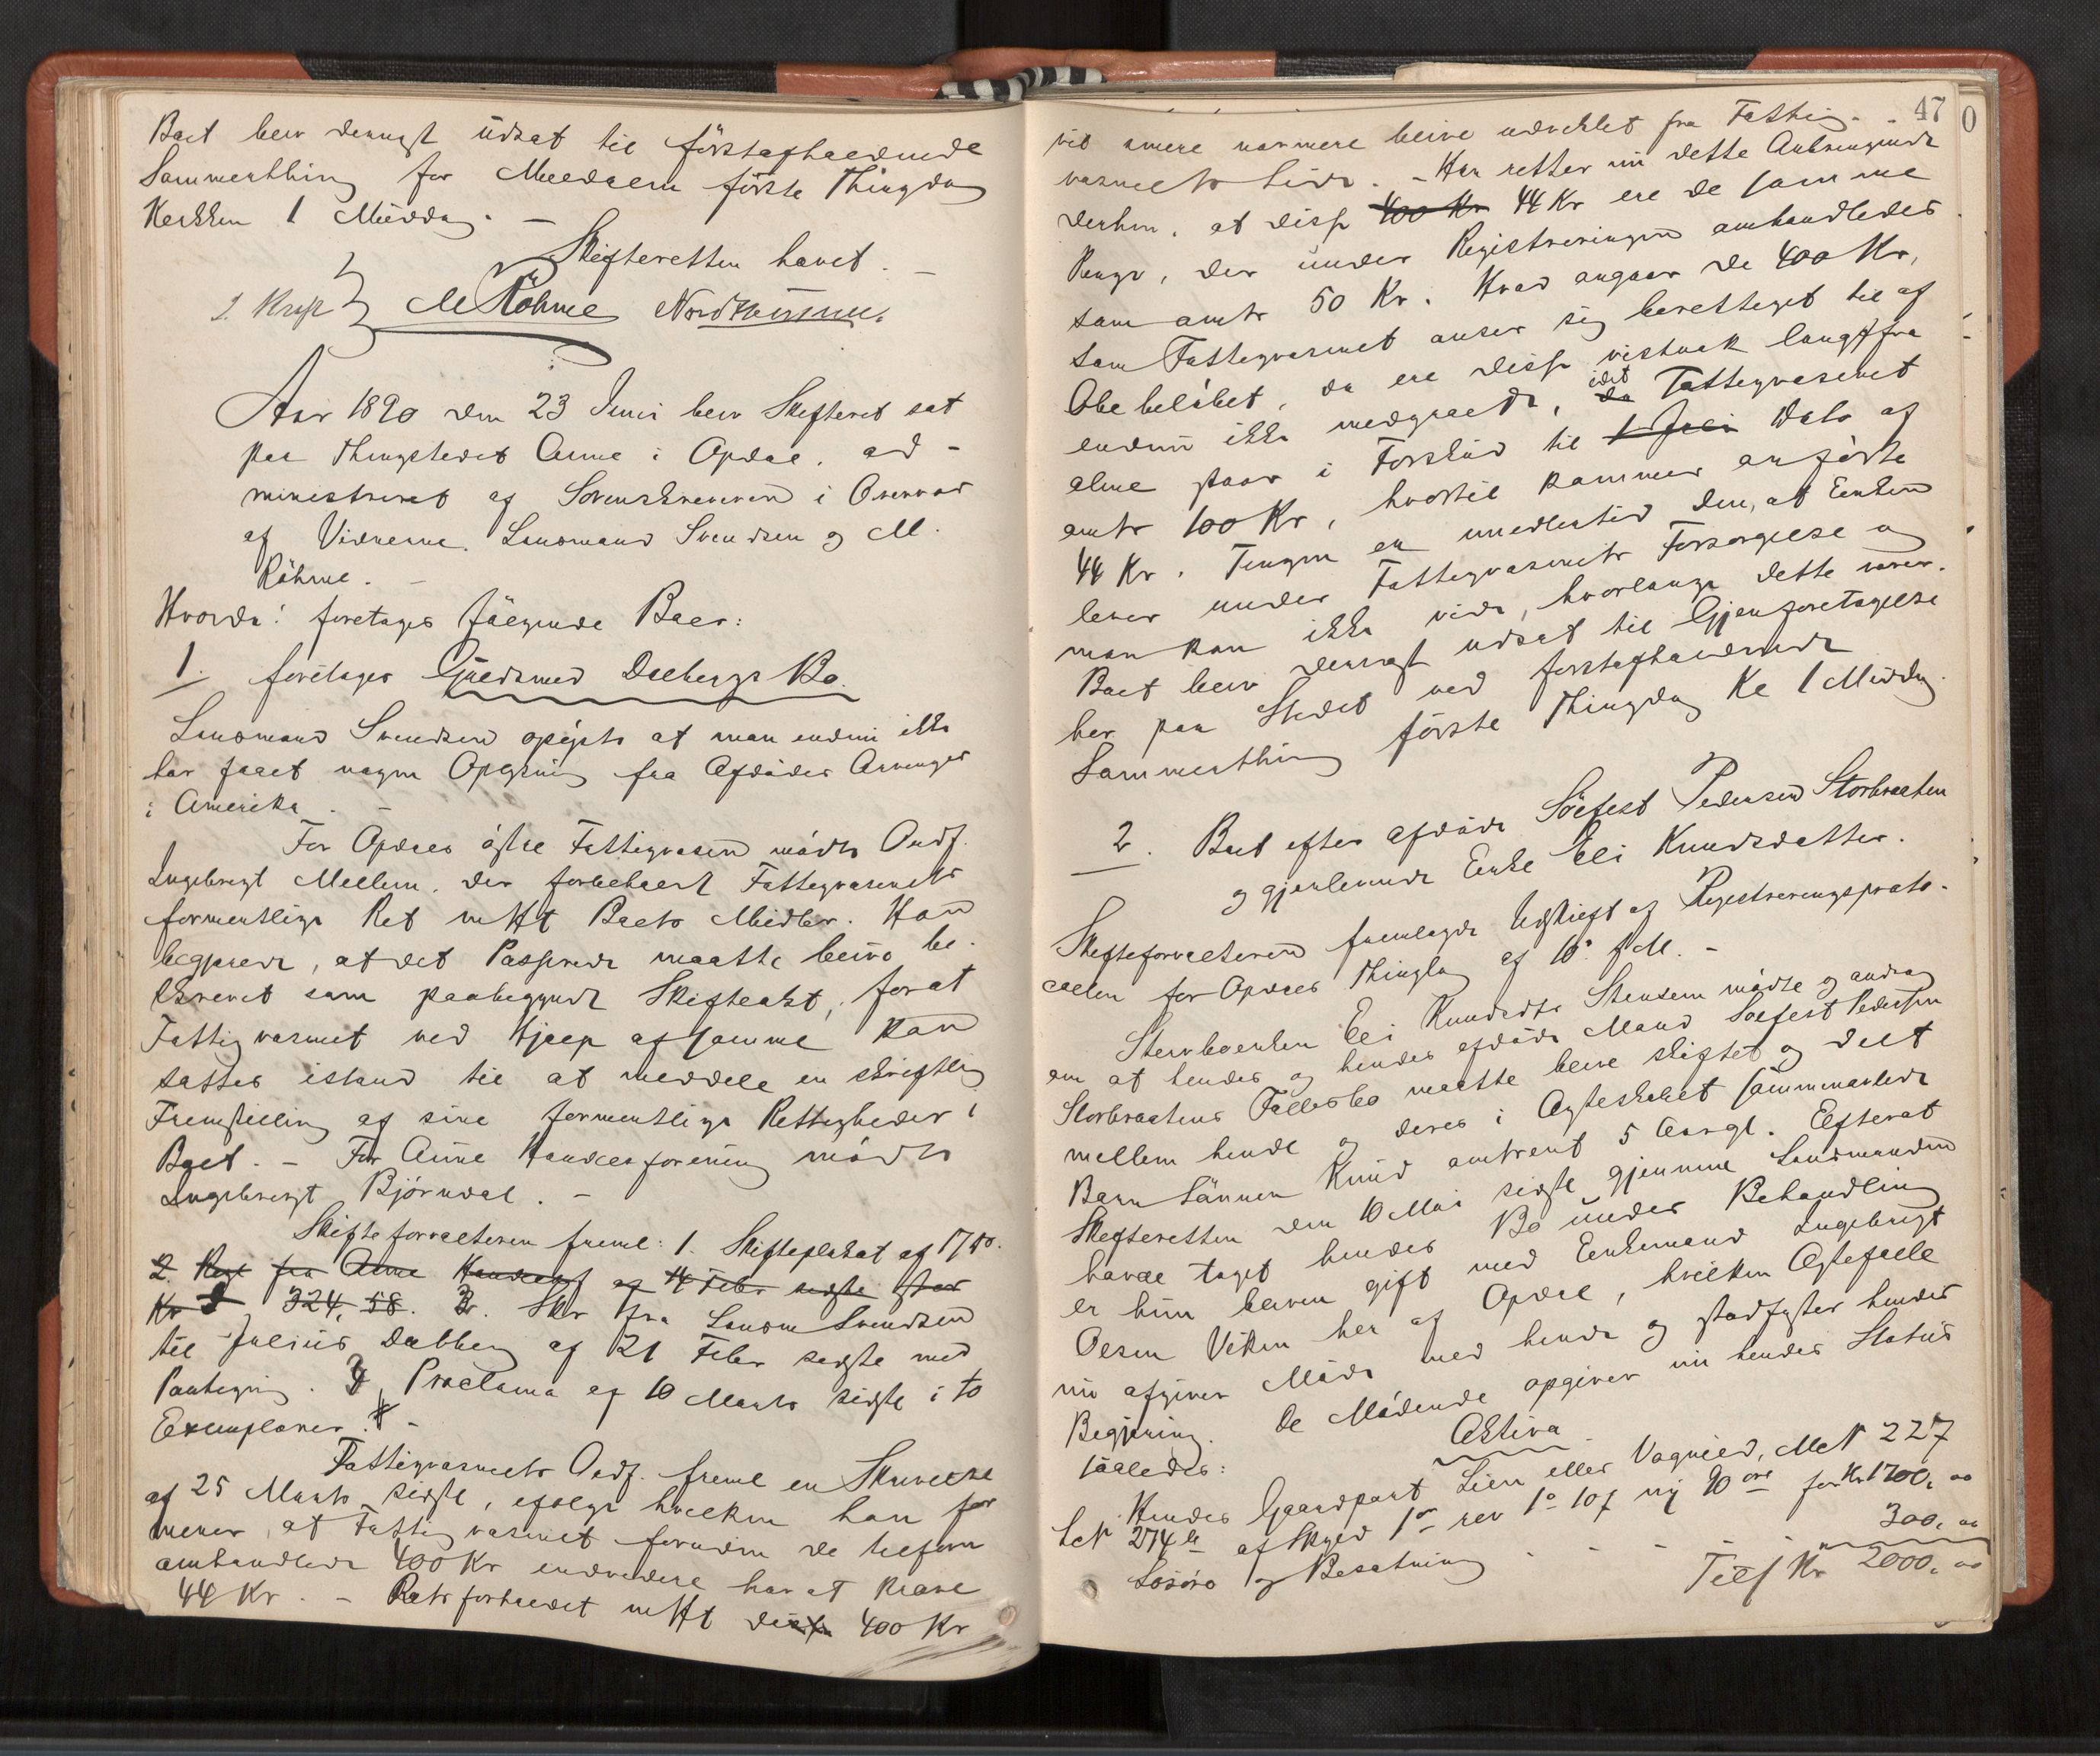 Boet blev dernæst udsat til förstafholdende
Sommerthing for Meldalen förste Thingdag
Klokken 1 Middag. —
Skifteretten hævet. —
MRöhme
Aar 1890 den 23 Juni blev Skifteret sat
paa Thingstedet Aune i Opdal, ad-
ministreret af Sorenskriveren i Overvær
af Vidnerne Lensmand Svendsen og M.
Röhme. —
Hvorda: foretages fölgende Boer:
1. foretages Guldsmed Dalbergs Bo.
Lensmand Svendsen oplyste at man endnu ikke
har faaet nogen Oplysning fra Afdödes Arvinger
i Amerika. —
For Opdals östre Fattigvæsen mödte Ordf.
Ingebrigt Mellem, der forbeholdt Fattigvæsenets
formentlige Ret til Boets Midler. Han
begjærede, at det Passerede maatte blive be-
skrevet som paabegyndt Skifteakt, forat
Fattigvæsenet ved Hjælp af samme kan
sættes istand til at meddele en skriftlig
Fremstilling af sine formentlige Rettigheder i
Boet. — For Aune Handelsforening mödte
Ingebrigt Björndal. —
Skifteforvalteren freml: 1. Skifteplakat af
2. fra Aune Handelsf af 4 Febr sidste stor
Kr 324,58. 2. Skr fra Lensm Svendsen
til Julius Dalberg af 21 Febr sidste med
Paategning. 3, Proclama af 10 Marts sidste i to
Exemplarer. —
Fattigvæsenets Ordf. freml en Skrivelse
af 25 Marts sidste, ifölge hvilken han for
mener, at Fattigvæsenet foruden de
omhandlede 400 Kr endvidere har at kræve
44 Kr. — Retsforholdet 400 Kr
47
vil senere nærmere blive udviklet fra Fattig-
væsenets Side. — Han retter nu dette Anbringende
derhen, at disse 400 Kr 44 Kr ere de samme
Penge, der under Registreringen omhandledes
som omtr 50 Kr. Hvad angaar de 400 Kr,
som Fattigvæsenet anser sig berettiget til af
Obebelöbet, da ere disse vistnok langtfra
endnu ikke medgaaede, da idet Fattigvæsenet
alene staar i Forskud til 1 Juli Dato af
omtr 100 Kr, hvortil kommer anförte
44 Kr. Tingen er imidlertid den, at Enken
lever under Fattigvæsenets Forsörgelse og
man kan ikke vide, hvorlænge dette varer.
Boet blev dernæst udsat til Gjenforetagelse
her paa Stedet ved förstafholdende
Sommerthing förste Thingdag Kl 1 Middag.
2. Boet efter afdöde Solfest Pedersen Storbraaten
og gjenlevende Enke Eli Knudsdatter.
Skifteforvalteren fremlagde Udskrift af Registreringsproto-
collen for Opdals Thinglag af 10. —
Stervboenken Eli Knudsdtr Stensem mödte og androg
om at hendes og hendes afdöde Mand Solfest Pedersen
Storbraatens Fællesbo maatte blive skiftet og delt
mellem hende og deres i Ægteskabet sammenavlede
Barn Sönnen Knud omtrent 5 Aar gl. Efterat
Skifteretten den 10 Mai sidste gjennem Lensmanden
havde taget hendes Bo under Behandling
er hun bleven gift med Enkemand Ingebrigt
Olsen Viken her af Opdal, hvilken Ægtefælle
nu afgiver Möde med hende og stadfæster hendes
Begjæring. De Mödende opgiver nu hendes Status
saaledes:
Aktiva
Hendes Gaardpart Lien eller Vognild, MtN 227
LN 274 b af Skyld 1 rev 1 107 ny 90 öre for Kr 1700,00
Lösöre og Besætning - - - - 300,00
Tils Kr 2000,00